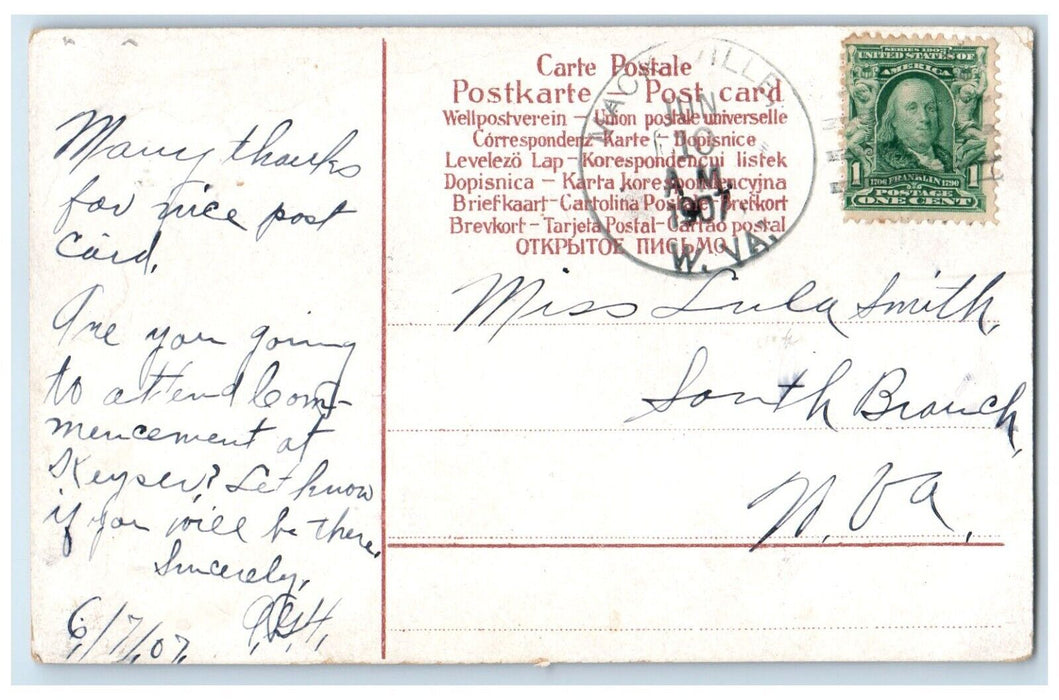 Many thanks
for nice post
card.
Are you going
to attend Com-
mencement at
Keyser? Let know
if you will be there.
Sincerely,
6/7/07.
Carte Postale
Postkarte Post card
Weltpostverein – Union postale universelle
Correspondenz-Karte – Dopisnice
Levelező Lap – Korespondencyi listek
Dopisnica – Karta korespondencyjna
Briefkaart – Cartolina Postale – Brefkort
Brevkort – Tarjeta Postal – Cartão postal
ОТКРЫТОЕ ПИСЬМО
JUN
10
A.M.
1907
W. VA.
SERIES 1902
UNITED STATES OF
AMERICA
1 1706 FRANKLIN 1790 1
POSTAGE
ONE CENT
Miss Lula Smith,
South Branch,
W. Va.